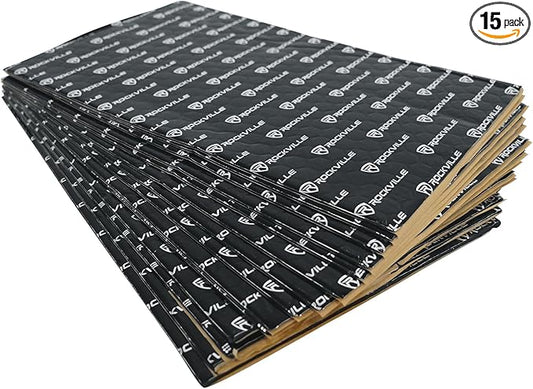 15 pack
ROCKVILLE